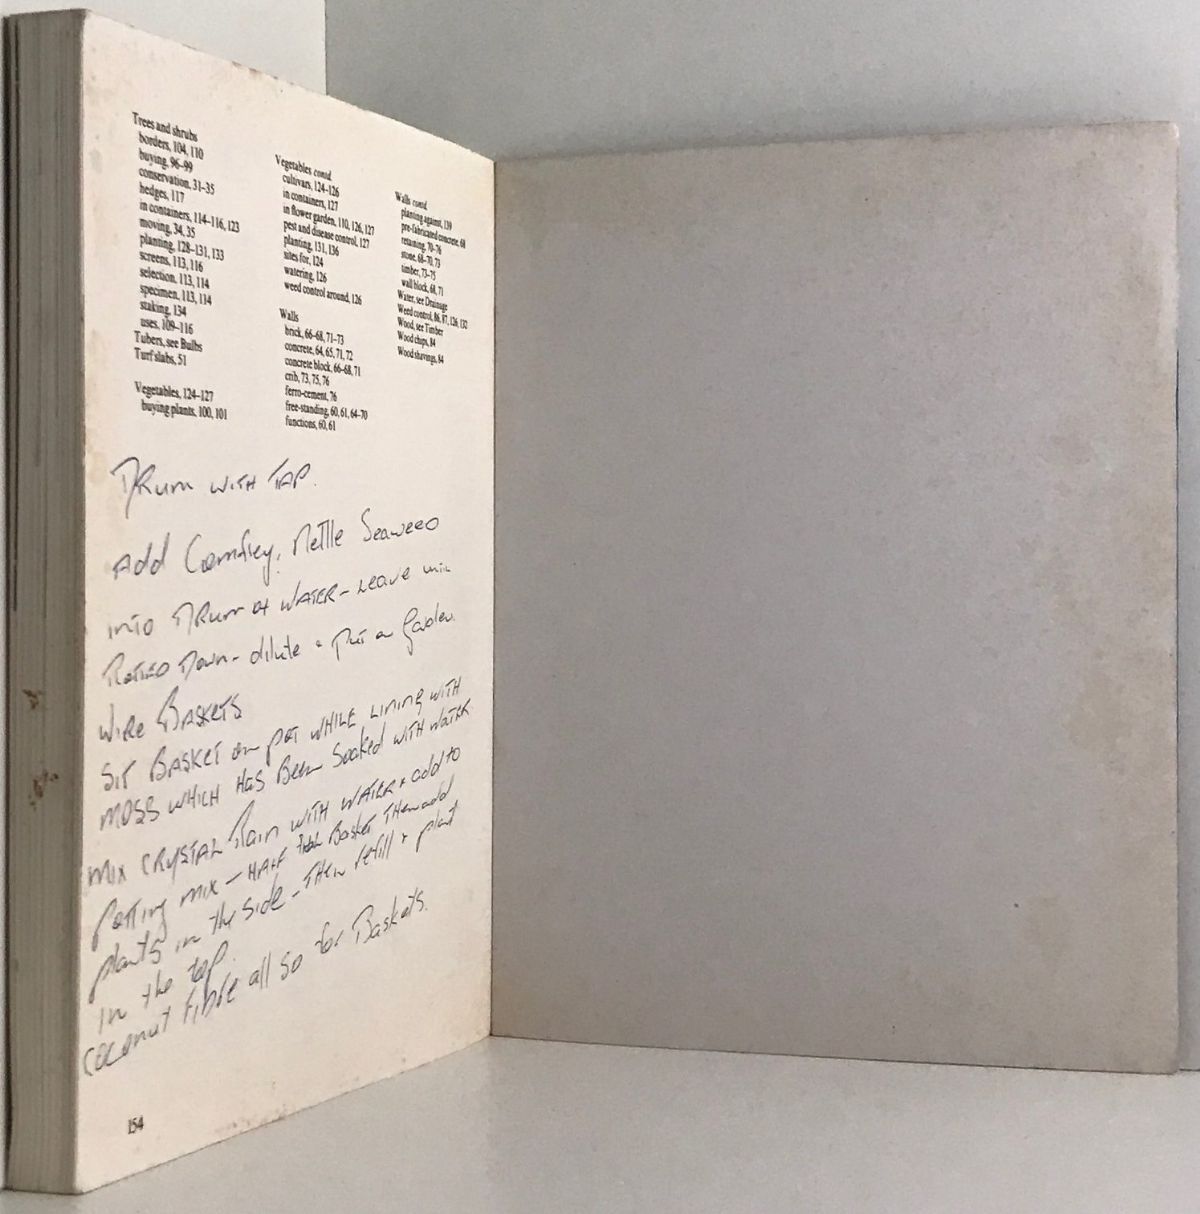 Trees and shrubs
borders, 104, 110
buying, 96–99
conservation, 31–35
hedges, 117
in containers, 114–116, 123
moving, 34, 35
planting, 128–131, 133
screens, 113, 116
selection, 113, 114
specimen, 113, 114
staking, 134
uses, 109–116
Tubers, see Bulbs
Turf slabs, 51
Vegetables, 124–127
buying plants, 100, 101
Vegetables contd
cultivars, 124–126
in containers, 127
in flower garden, 110, 126, 127
pest and disease control, 127
planting, 131, 136
sites for, 124
watering, 126
weed control around, 126
Walls
brick, 66–68, 71–73
concrete, 64, 65, 71, 72
concrete block, 66–68, 71
crib, 73, 75, 76
ferro-cement, 76
free-standing, 60, 61, 64–70
functions, 60, 61
Walls contd
planting against, 139
pre-fabricated concrete, 68
retaining, 70–76
stone, 68–70, 73
timber, 73–75
wall block, 68, 71
Water, see Drainage
Weed control, 86, 87, 126, 132
Wood, see Timber
Wood chips, 84
Wood shavings, 84
DRum WITH TAP.
Add Comfrey, Nettle Seaweed
into DRum of WATER – Leave
Rotted Down – dilute + Put on Garden.
WIRE BASKETS
SIT BASKET on POT WHILE LINING WITH
MOSS WHICH HAS BEEN Soaked WITH WATER
MIX CRYSTAL Rain WITH WATER + add to
Potting MIX – HALF Basket THEN add
plants in the side – THEN refill + plant
IN the top.
COCONUT FIBRE all so for Baskets.
154